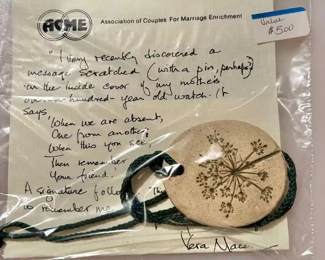 ACME
Association of Couples For Marriage Enrichment
Value
$500
"I very recently discovered a
message scratched (with a pin, perhaps)
in the inside cover of my mother's
hundred-year old watch. It
says
'When we are absent,
One from another,
When this you see
Then remember
Your friend.'
A signature follo
to remember me
Vera Mace